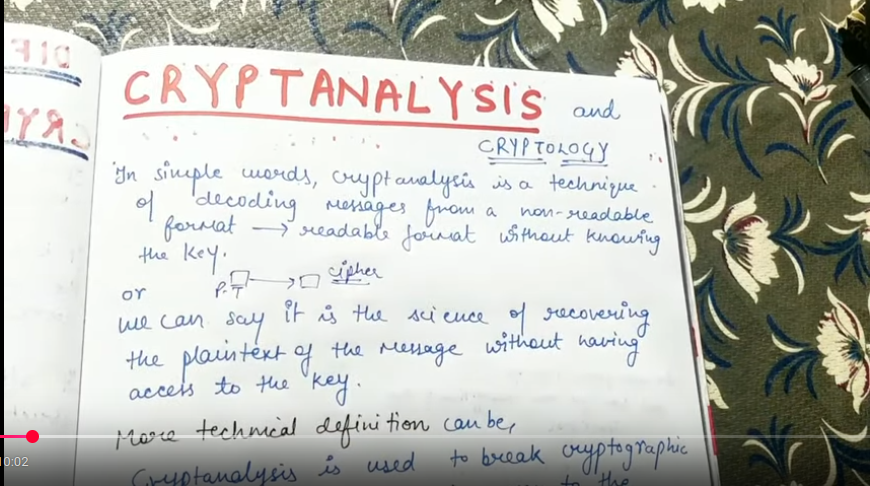 CRYPTANALYSIS and
CRYPTOLOGY
In simple words, cryptanalysis is a technique
of decoding messages from a non-readable
format → readable format without knowing
the key.
P.T → cipher
or
we can say it is the science of recovering
the plaintext of the message without having
access to the key.
More technical definition can be,
Cryptanalysis is used to break cryptographic
to the
10:02